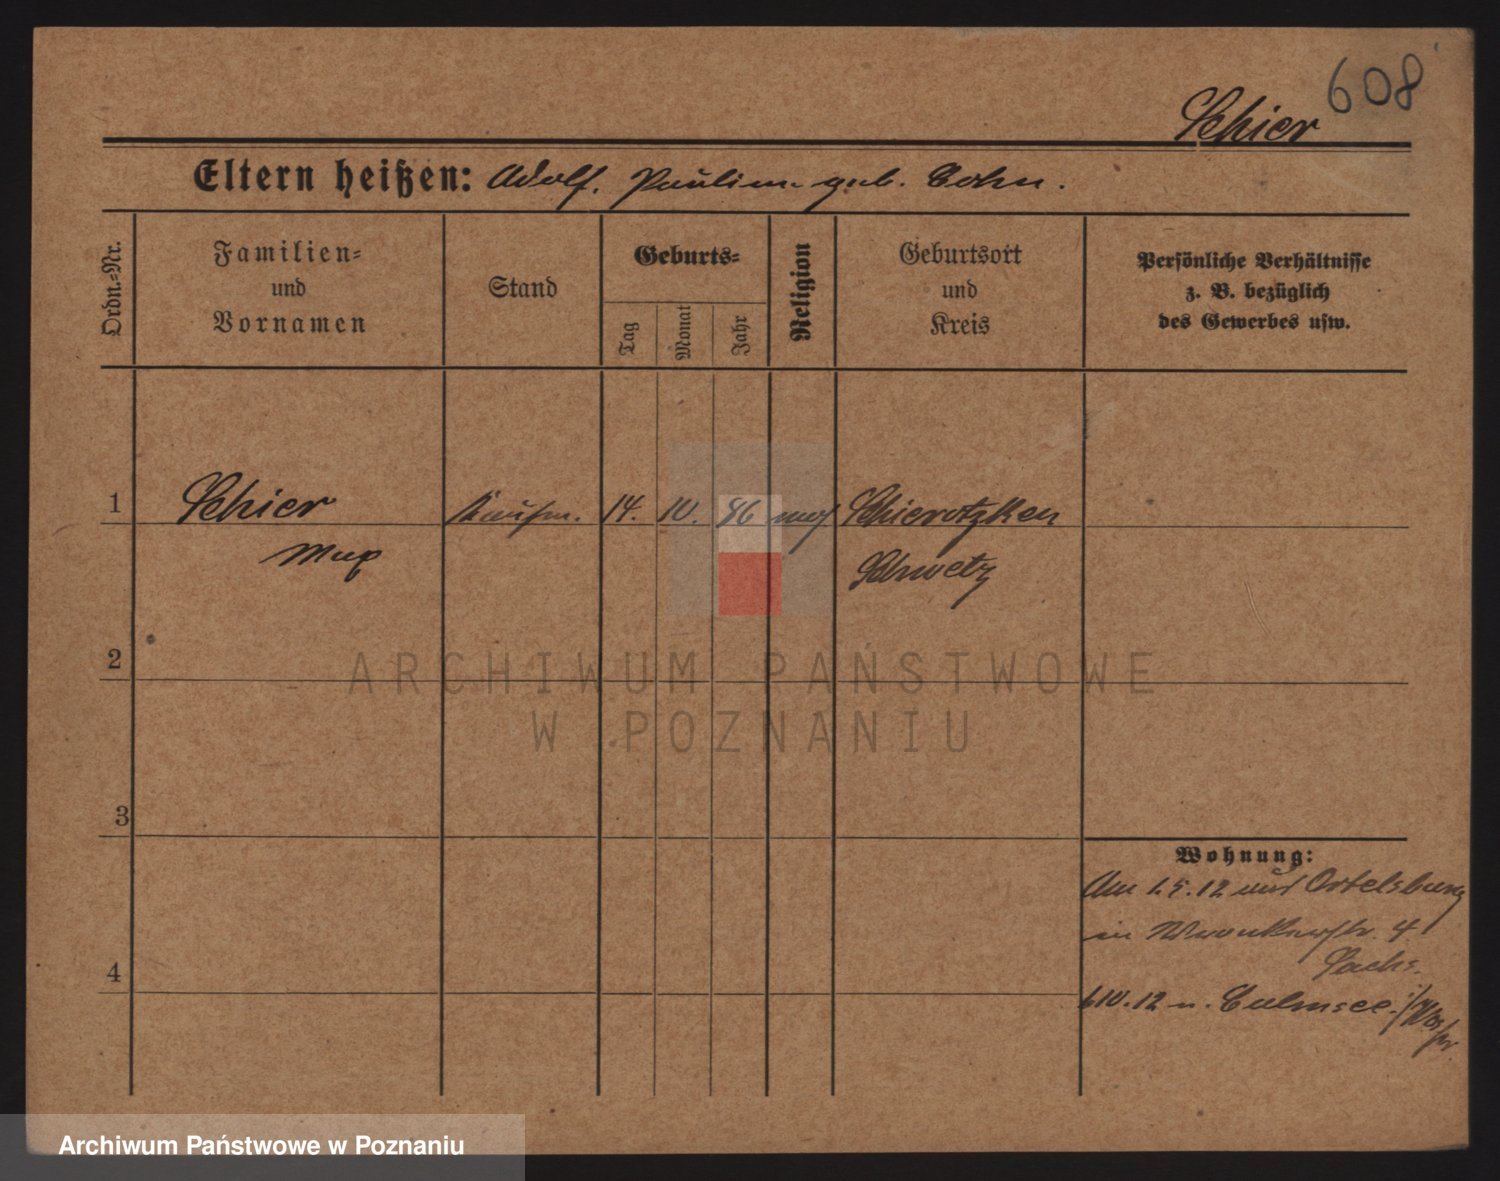 608
Schier
Eltern heißen: Adolf. Pauline geb. Cohn.
Ordn.-Nr.
Familien-
und
Vornamen
Stand
Geburts-
Tag
Monat
Jahr
Religion
Geburtsort
und
Kreis
Persönliche Verhältnisse
z. B. bezüglich
des Gewerbes usw.
1 Schier Kaufm. 14. 10. 96 mos Schierotzken
Max Schwetz
2
3
4
Wohnung:
Am 1.5.12 aus Ortelsburg
in Wronkerstr. 4
Sachs.
10.12 n. Culmsee
ARCHIWUM PAŃSTWOWE
W POZNANIU
Archiwum Państwowe w Poznaniu